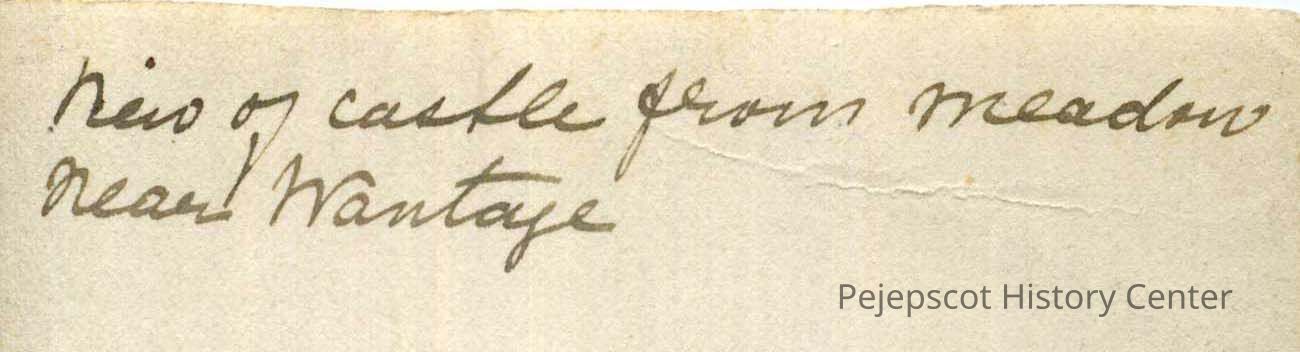 View of castle from meadow
near Wantage
Pejepscot History Center